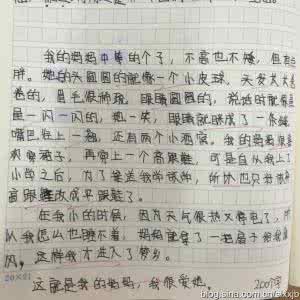 我的妈妈中等的个子,不高也不矮,但有点
胖。她的头圆圆的就像一个小皮球,头发大大
卷的,眉毛很稀疏,眼睛圆圆的,说话时就像星
星一闪一闪的,她一笑,眼睛就眯成了一条线
嘴巴往上一翘,还有两个小酒窝。我的妈妈很喜
欢穿裙子,再穿上一个高跟鞋,可是自从我上了
小学之后,为了接送我学
高跟鞋改成平跟鞋了。
在我小的时候,因为天气很热又停电了,所
以我怎么也睡不着,妈妈就拿了一把扇子给我扇
风,这样我才进入了梦乡。
这就是我的妈妈,我很爱她。 200字
20×21
blog.sina.com.cn/lxxjb